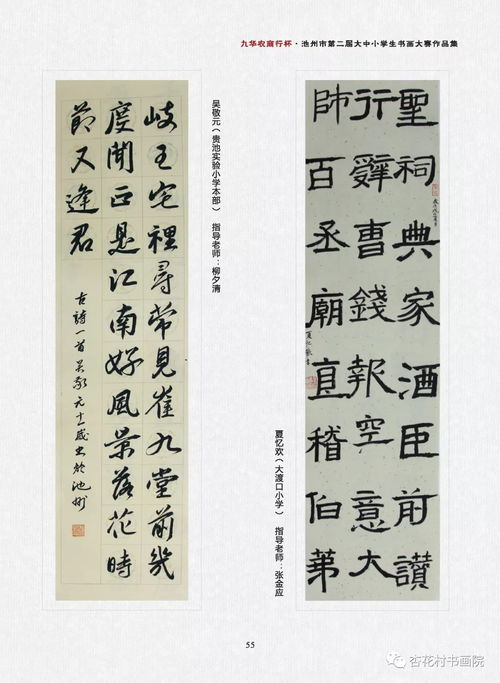 九华农商行杯·池州市第二届大中小学生书画大赛作品集
岐王宅裡尋常見崔九堂前幾
度聞正是江南好風景落花時
節又逢君
古詩一首吳敬元十一歲書於池州
吴敬元（贵池实验小学本部） 指导老师：柳夕清
聖祠典家酒臣前讚
行辤曹錢報空意大
師百丞廟直稽伯苐
夏忆欢（大渡口小学） 指导老师：张金应
55
杏花村书画院